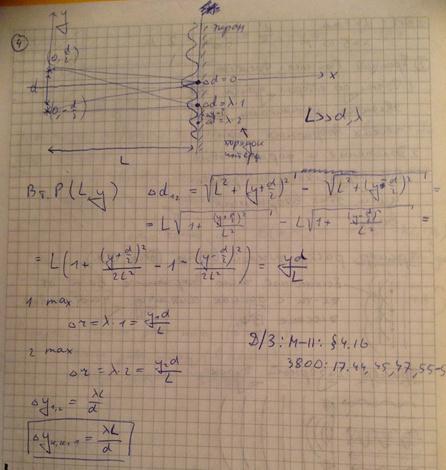 ④
y
экран
(0, d/2)
d
Δd=0
x
(0, -d/2)
Δd=λ·1
Δd=λ·2
L>>d,λ
L
В т. P(L,y) Δd₁₂ = √(L²+(y+d/2)²) - √(L²+(y-d/2)²) =
= L√(1+(y+d/2)²/L²) - L√(1+(y-d/2)²/L²) =
= L(1+(y+d/2)²/2L² - 1 - (y-d/2)²/2L²) = yd/L
1 max
Δr=λ·1=y₁d/L
2 max
Δr=λ·2=y₂d/L
Δy₁,₂=λL/d
=λL/d
Д/З: М-11: §4.16
3800: 17.44, 45, 47,